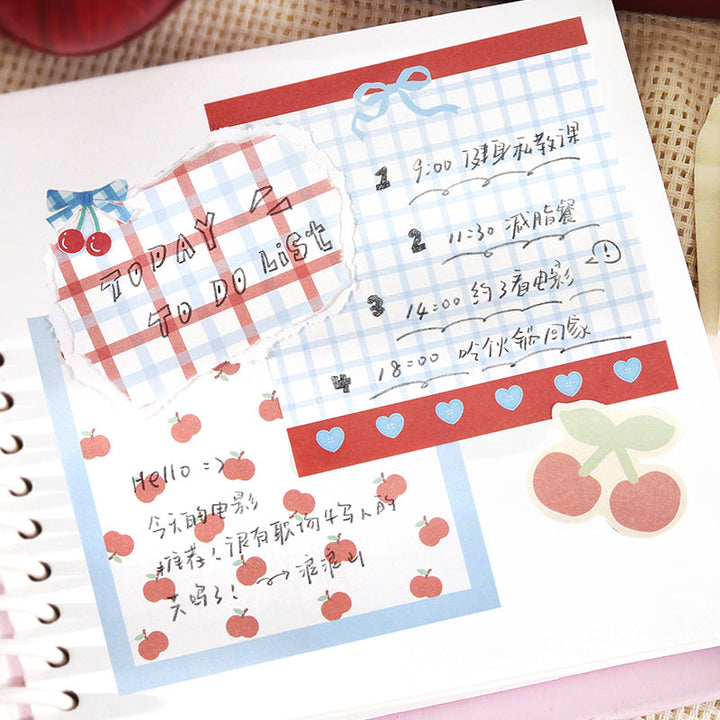 TODAY
TO DO LIST
1 9:00 健身私教课
2 11:30 减脂餐
3 14:00 约了看电影 !
4 18:00 吃伙锅回家
Hello =>
今天的电影
推荐!很有职场牛马人的
共鸣了! 浪浪山